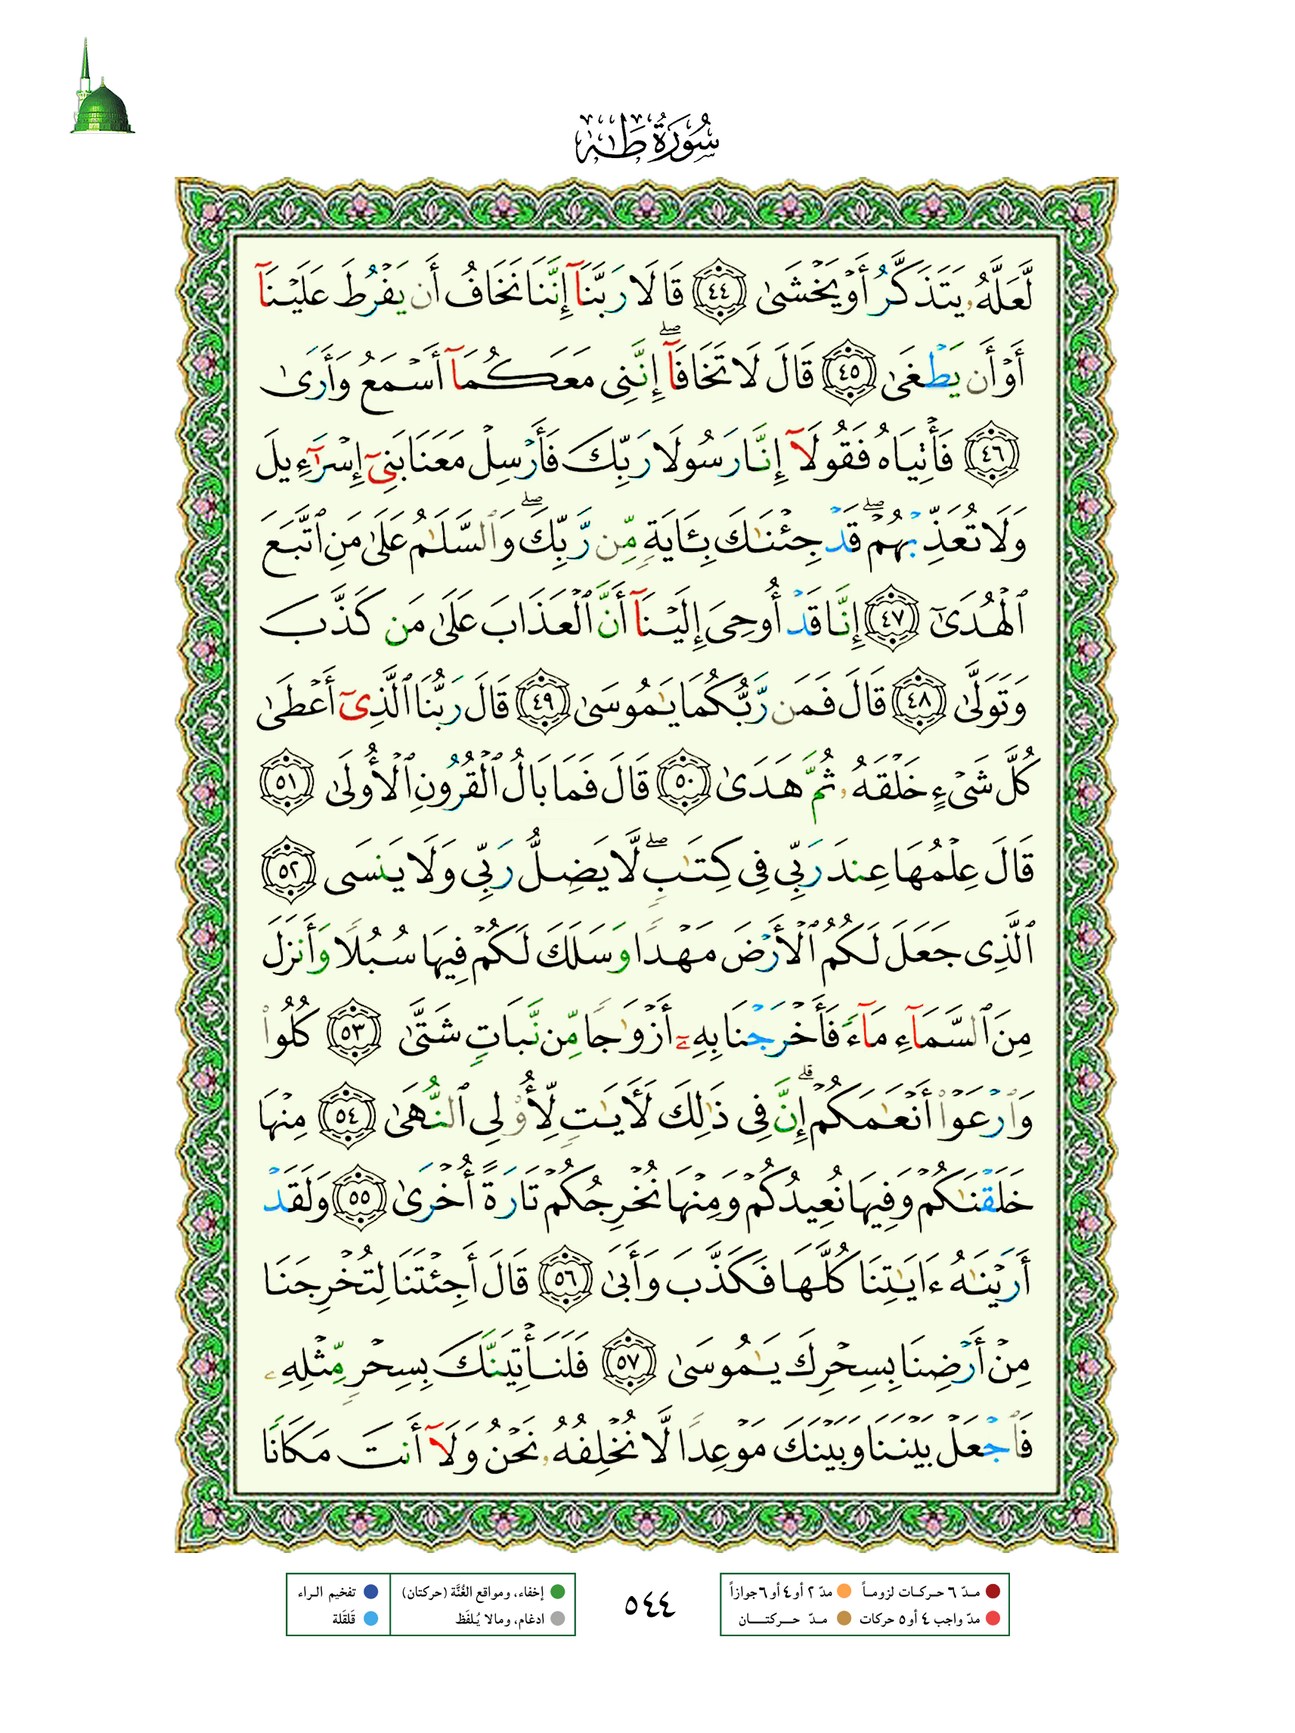 سُورَةُ طَٰهٰ
لَّعَلَّهُۥ يَتَذَكَّرُ أَوْ يَخْشَىٰ ﴿٤٤﴾ قَالَا رَبَّنَآ إِنَّنَا نَخَافُ أَن يَفْرُطَ عَلَيْنَآ
أَوْ أَن يَطْغَىٰ ﴿٤٥﴾ قَالَ لَا تَخَافَآ ۖ إِنَّنِى مَعَكُمَآ أَسْمَعُ وَأَرَىٰ
﴿٤٦﴾ فَأْتِيَاهُ فَقُولَآ إِنَّا رَسُولَا رَبِّكَ فَأَرْسِلْ مَعَنَا بَنِىٓ إِسْرَٰٓءِيلَ
وَلَا تُعَذِّبْهُمْ ۖ قَدْ جِئْنَٰكَ بِـَٔايَةٍ مِّن رَّبِّكَ ۖ وَٱلسَّلَٰمُ عَلَىٰ مَنِ ٱتَّبَعَ
ٱلْهُدَىٰٓ ﴿٤٧﴾ إِنَّا قَدْ أُوحِىَ إِلَيْنَآ أَنَّ ٱلْعَذَابَ عَلَىٰ مَن كَذَّبَ
وَتَوَلَّىٰ ﴿٤٨﴾ قَالَ فَمَن رَّبُّكُمَا يَٰمُوسَىٰ ﴿٤٩﴾ قَالَ رَبُّنَا ٱلَّذِىٓ أَعْطَىٰ
كُلَّ شَىْءٍ خَلْقَهُۥ ثُمَّ هَدَىٰ ﴿٥٠﴾ قَالَ فَمَا بَالُ ٱلْقُرُونِ ٱلْأُولَىٰ ﴿٥١﴾
قَالَ عِلْمُهَا عِندَ رَبِّى فِى كِتَٰبٍ ۖ لَّا يَضِلُّ رَبِّى وَلَا يَنسَى ﴿٥٢﴾
ٱلَّذِى جَعَلَ لَكُمُ ٱلْأَرْضَ مَهْدًا وَسَلَكَ لَكُمْ فِيهَا سُبُلًا وَأَنزَلَ
مِنَ ٱلسَّمَآءِ مَآءً فَأَخْرَجْنَا بِهِۦٓ أَزْوَٰجًا مِّن نَّبَاتٍ شَتَّىٰ ﴿٥٣﴾ كُلُوا۟
وَٱرْعَوْا۟ أَنْعَٰمَكُمْ ۗ إِنَّ فِى ذَٰلِكَ لَـَٔايَٰتٍ لِّأُو۟لِى ٱلنُّهَىٰ ﴿٥٤﴾ مِنْهَا
خَلَقْنَٰكُمْ وَفِيهَا نُعِيدُكُمْ وَمِنْهَا نُخْرِجُكُمْ تَارَةً أُخْرَىٰ ﴿٥٥﴾ وَلَقَدْ
أَرَيْنَٰهُ ءَايَٰتِنَا كُلَّهَا فَكَذَّبَ وَأَبَىٰ ﴿٥٦﴾ قَالَ أَجِئْتَنَا لِتُخْرِجَنَا
مِنْ أَرْضِنَا بِسِحْرِكَ يَٰمُوسَىٰ ﴿٥٧﴾ فَلَنَأْتِيَنَّكَ بِسِحْرٍ مِّثْلِهِۦ
فَٱجْعَلْ بَيْنَنَا وَبَيْنَكَ مَوْعِدًا لَّا نُخْلِفُهُۥ نَحْنُ وَلَآ أَنتَ مَكَانًا
مدّ ٦ حركات لزوماً مدّ ٢ أو ٤ أو ٦ جوازاً
مدّ واجب ٤ أو ٥ حركات مدّ حركتان
٥٤٤
إخفاء، ومواقع الغُنَّة (حركتان) تفخيم الراء
ادغام، ومالا يُلفَظ قلقلة